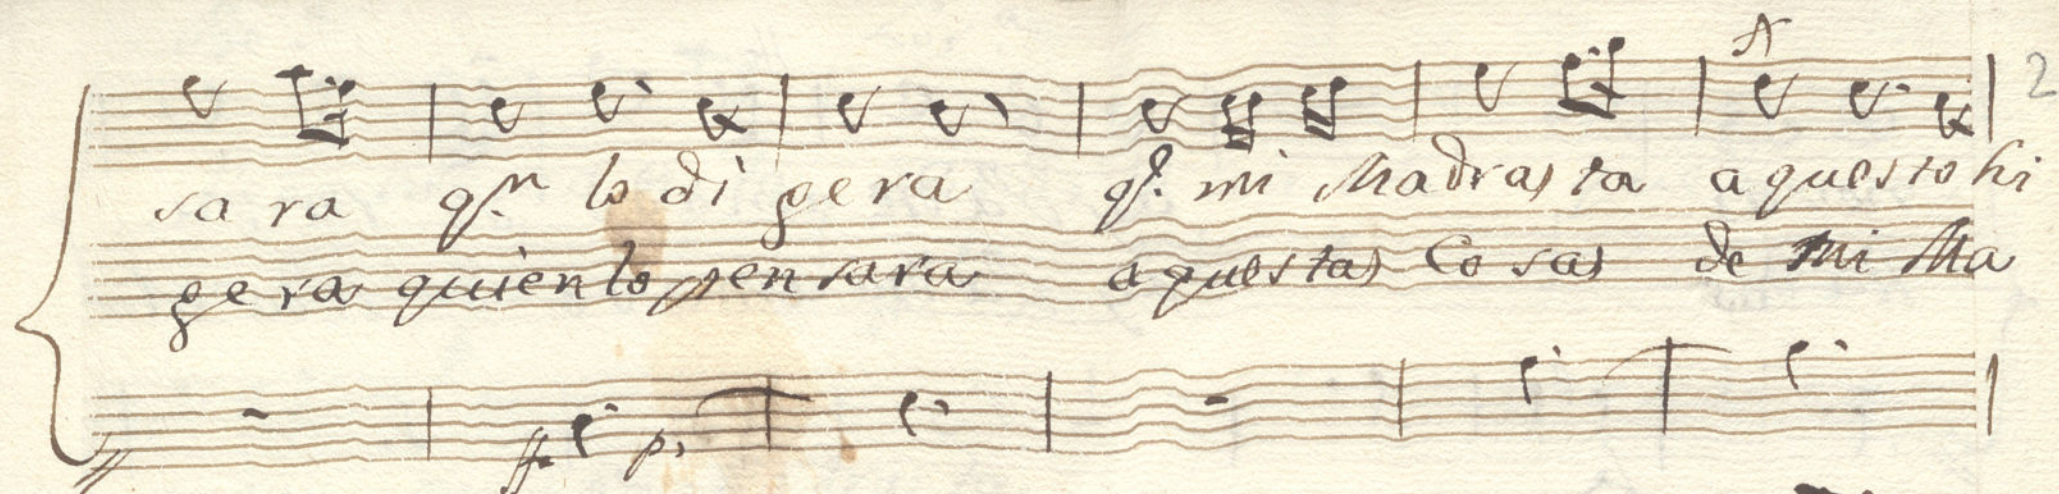 2
sa ra qn lo di gera q. mi Madrasta aquesto hi
gera quien lo pensara aquestas Cosas de mi Ma
ff p.